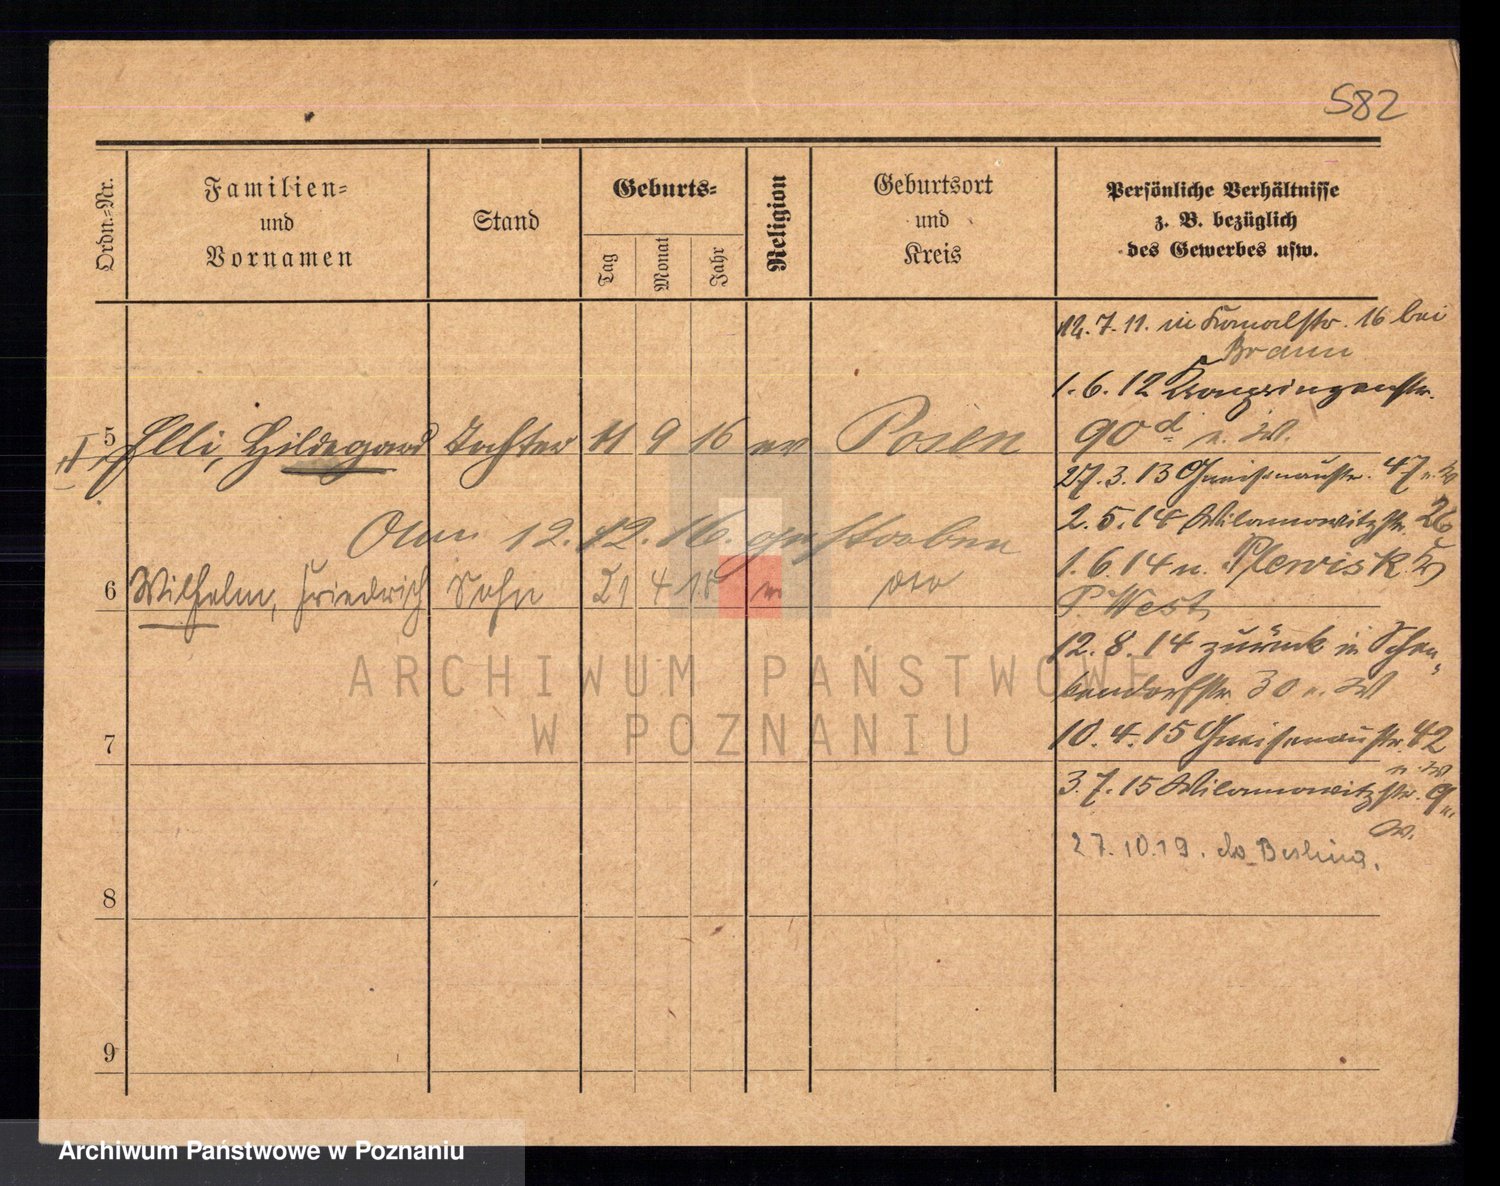 582
Ordn.-Nr.
Familien-
und
Vornamen
Stand
Geburts-
Tag
Monat
Jahr
Religion
Geburtsort
und
Kreis
Persönliche Verhältnisse
z. B. bezüglich
des Gewerbes usw.
12.7.11. in Kanalstr. 16 bei
Braun
1.6.12 Kronprinzenstr.
90d u. W.
5 Elli, Hildegard Tochter 11 9 16 ev Posen
27.3.13 Gneisenaustr. 47 u. W
2.5.14 Wilamowitzstr. 26
Am 12.12.16. gestorben
1.6.14 n. Plewisk Kr
P. West
6 Wilhelm, Friedrich Sohn 21 4 18
12.8.14 zurück in Schen-
kendorfstr. 30 u. W
7
10.4.15 Gneisenaustr. 42
u. W
3.7.15 Wilamowitzstr. 9 u.
W.
27.10.19. do Berlina.
8
9
ARCHIWUM PAŃSTWOWE
W POZNANIU
Archiwum Państwowe w Poznaniu